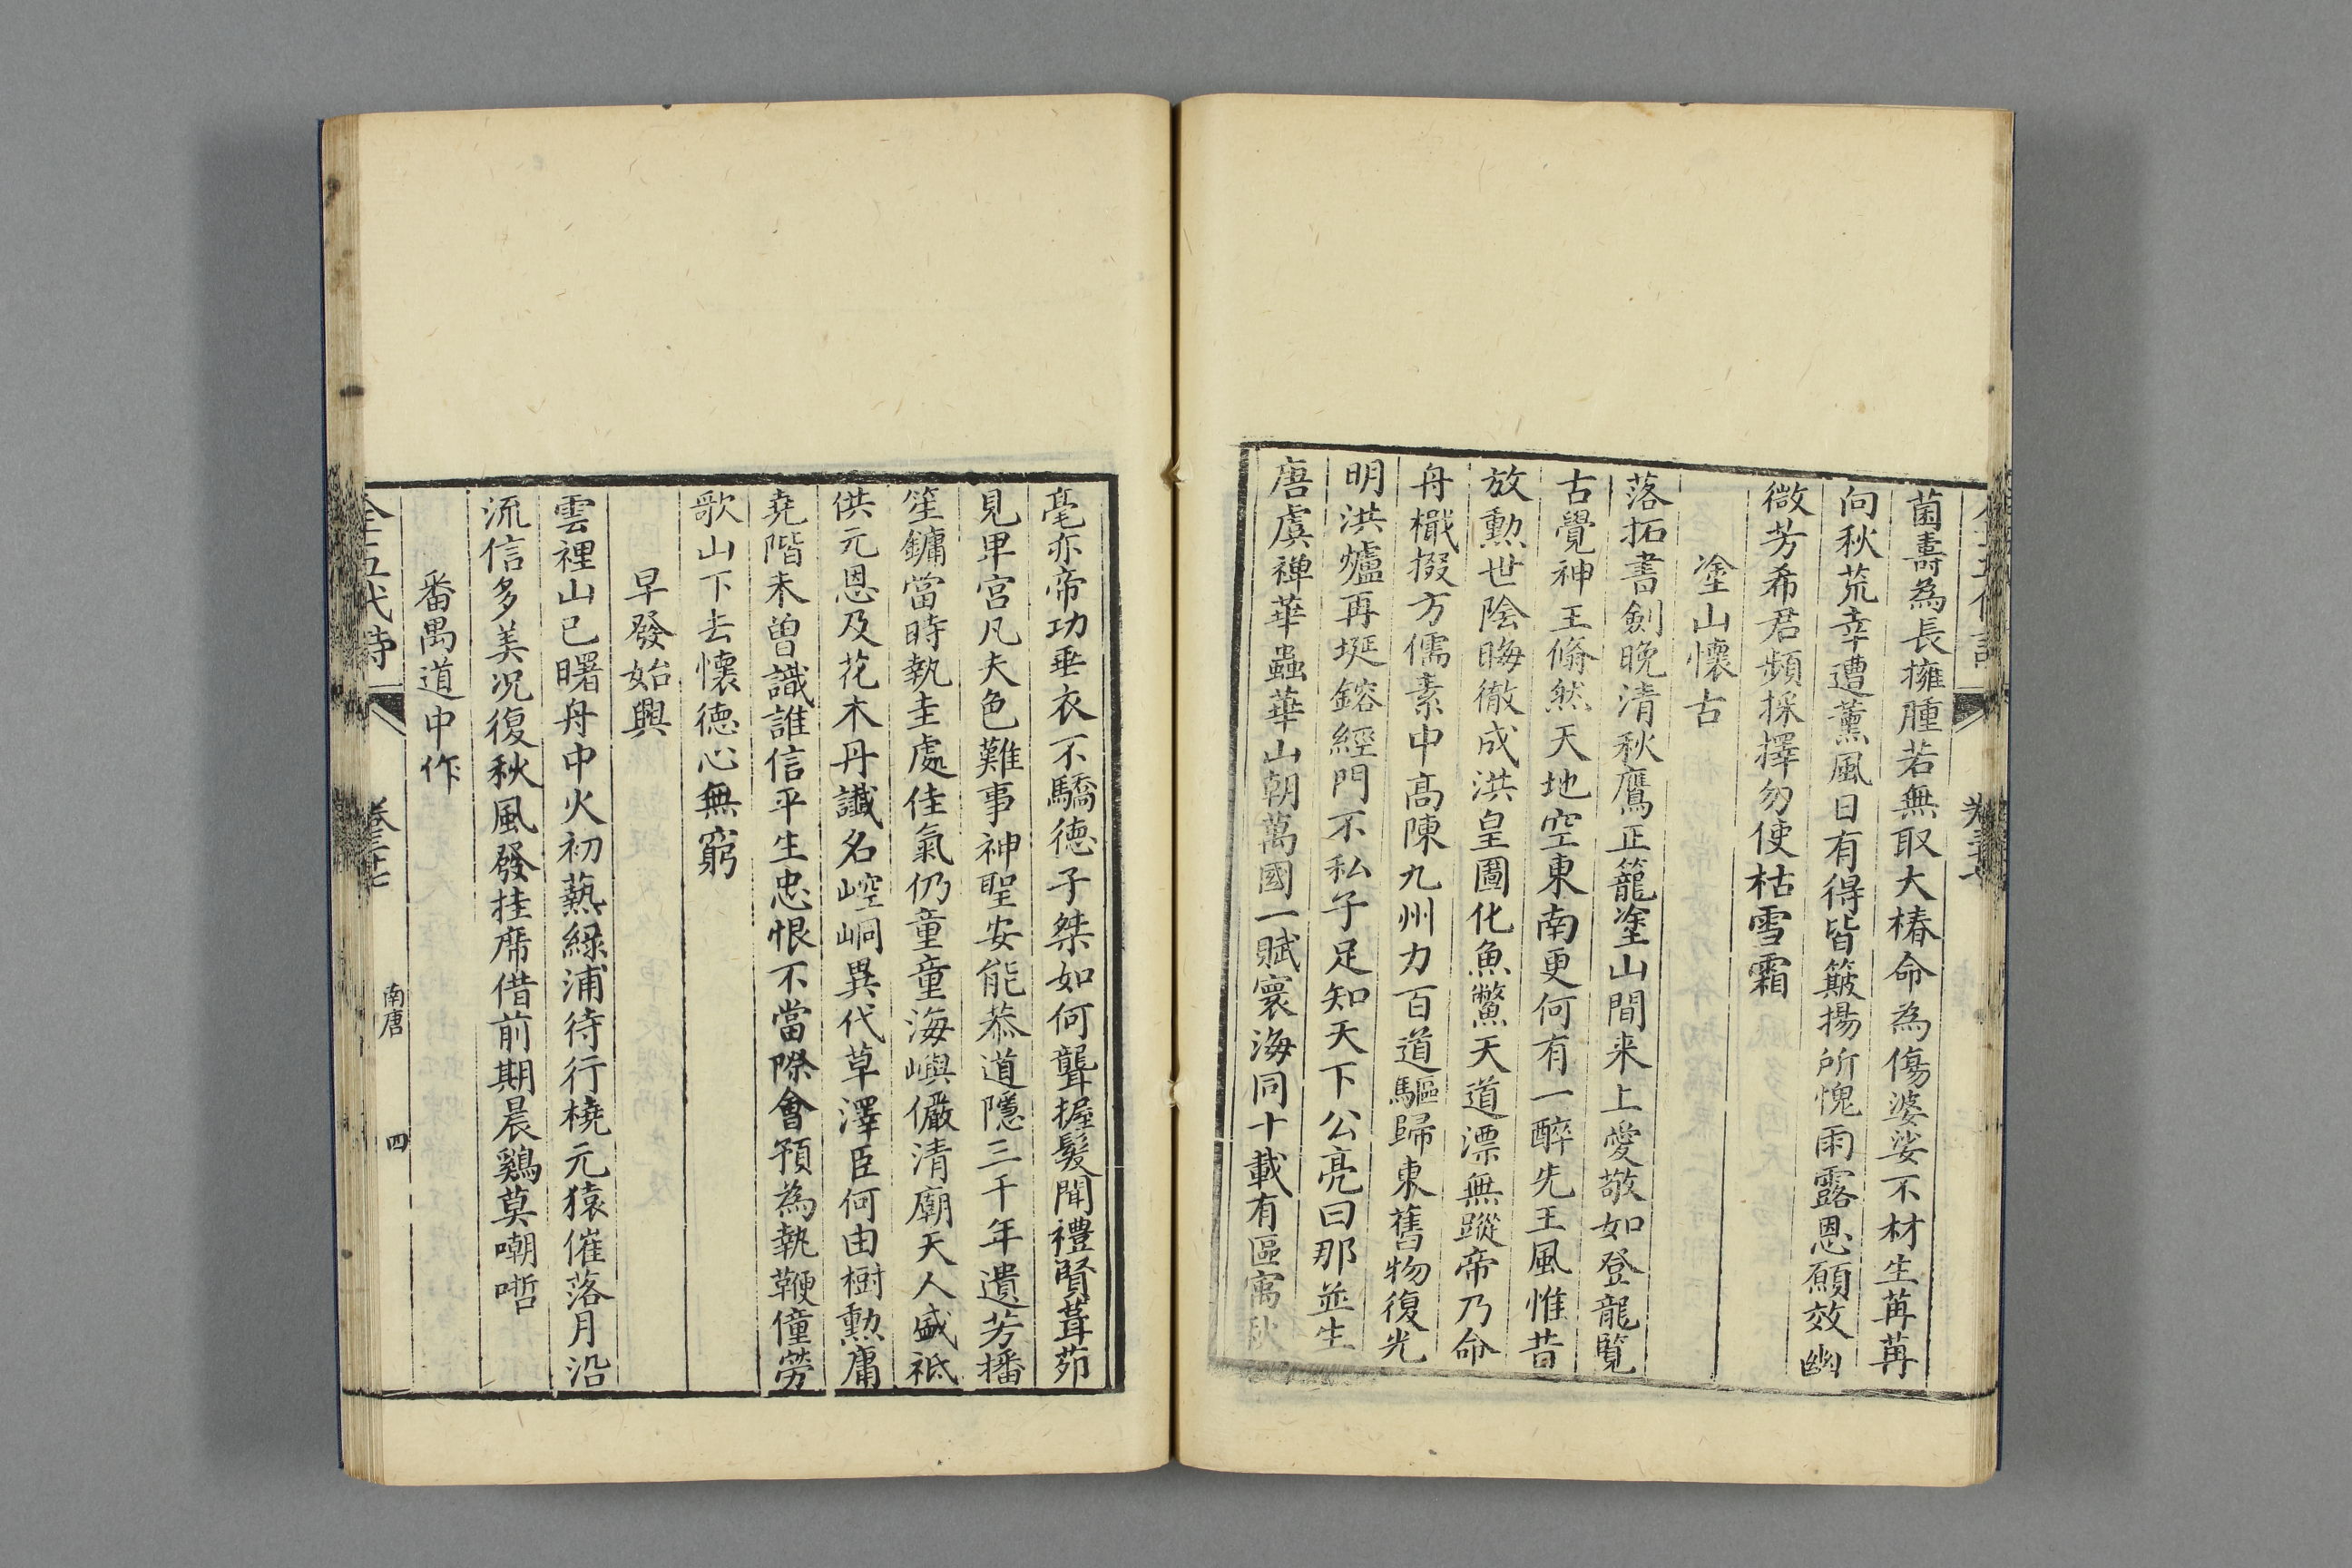 菌壽為長擁腫若無取大椿命為傷婆娑不材生苒苒
向秋荒幸遭薰風日有得皆簸揚所愧雨露恩願效幽
微芳希君頻採擇勿使枯雪霜
塗山懷古
落拓書劍晚清秋鷹正籠塗山間来上愛敬如登龍覽
古覺神王翛然天地空東南更何有一醉先王風惟昔
放勳世陰晦徹成洪皇圖化魚鱉天道漂無蹤帝乃命
舟檝掇方儒素中高陳九州力百道驅歸東舊物復光
明洪爐再埏鎔經門不私子足知天下公亮曰那並生
唐虞禅華蟲華山朝萬國一賦寰海同十載有區寓秋
毫亦帝功垂衣不驕德子桀如何聾握髮聞禮賢葺茆
見卑宮凡夫色難事神聖安能恭道隱三千年遺芳播
笙鏞當時執圭處佳氣仍童童海嶼儼清廟天人盛祗
供元恩及花木丹讖名崆峒異代草澤臣何由樹勲庸
堯階未曽識誰信平生忠恨不當際會預為執鞭僮勞
歌山下去懷德心無窮
早發始興
雲裡山已曙舟中火初爇緑浦待行橈元猿催落月沿
流信多美况復秋風發挂席借前期晨鷄莫嘲哳
番禺道中作
全五代詩
卷三十七
南唐
四